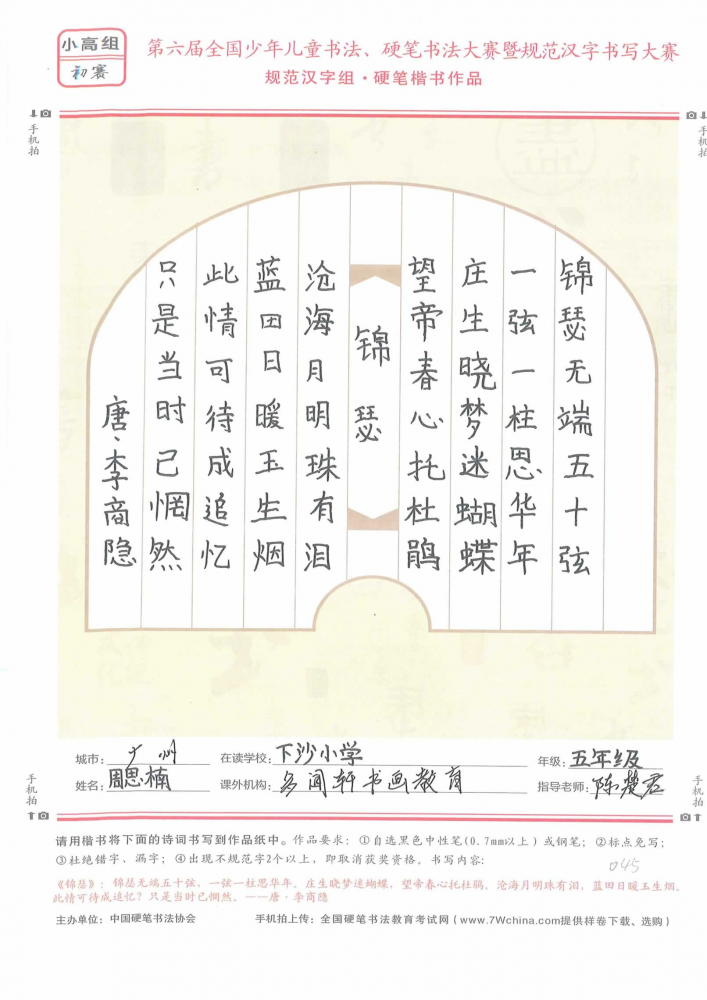 小高组
初赛
第六届全国少年儿童书法、硬笔书法大赛暨规范汉字书写大赛
规范汉字组·硬笔楷书作品
手机拍
手机拍
锦瑟无端五十弦
一弦一柱思华年
庄生晓梦迷蝴蝶
望帝春心托杜鹃
锦瑟
沧海月明珠有泪
蓝田日暖玉生烟
此情可待成追忆
只是当时已惘然
唐、李商隐
城市：广州 在读学校：下沙小学 年级：五年级
姓名：周思楠 课外机构：多闻轩书画教育 指导老师：陈楚君
手机拍
手机拍
请用楷书将下面的诗词书写到作品纸中。作品要求：①自选黑色中性笔(0.7mm以上）或钢笔；②标点免写；
③杜绝错字、漏字；④出现不规范字2个以上，即取消获奖资格。书写内容：
045
《锦瑟》：锦瑟无端五十弦，一弦一柱思华年。庄生晓梦迷蝴蝶，望帝春心托杜鹃。沧海月明珠有泪，蓝田日暖玉生烟。
此情可待成追忆？只是当时已惘然。——唐·李商隐
主办单位：中国硬笔书法协会 手机拍上传：全国硬笔书法教育考试网（www.7Wchina.com提供样卷下载、选购）